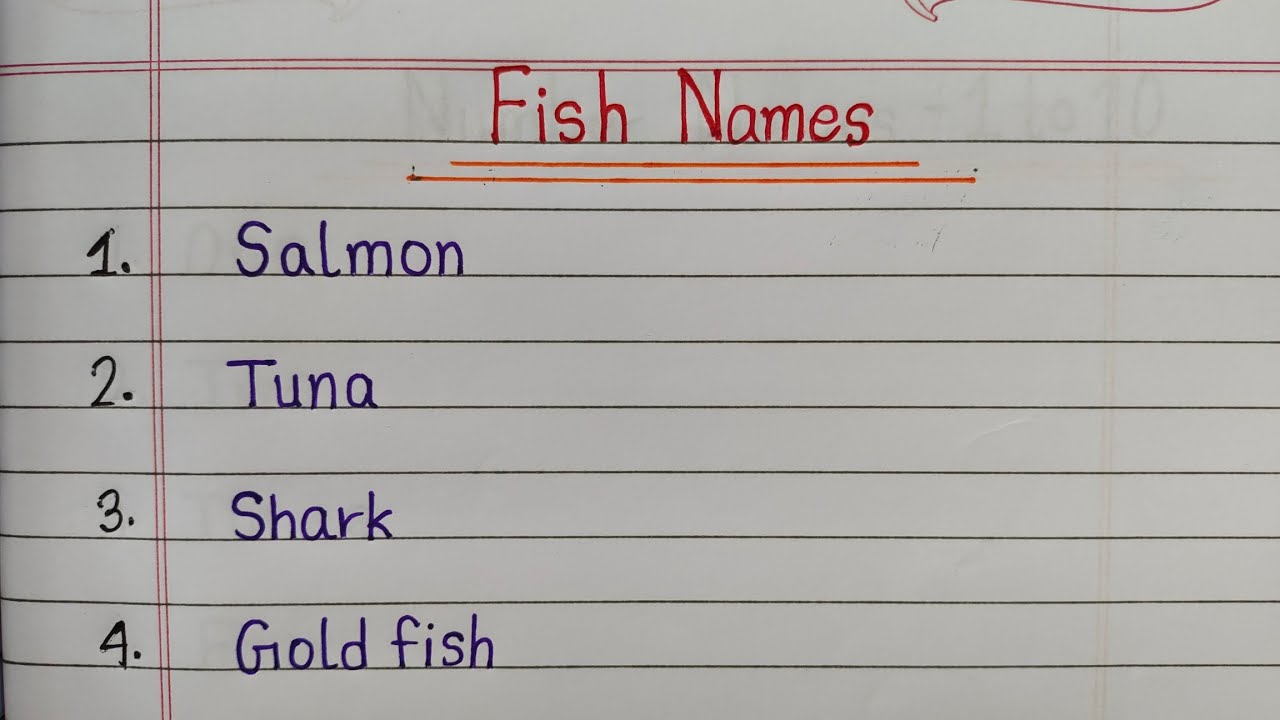 Fish Names
1. Salmon
2. Tuna
3. Shark
4. Gold fish